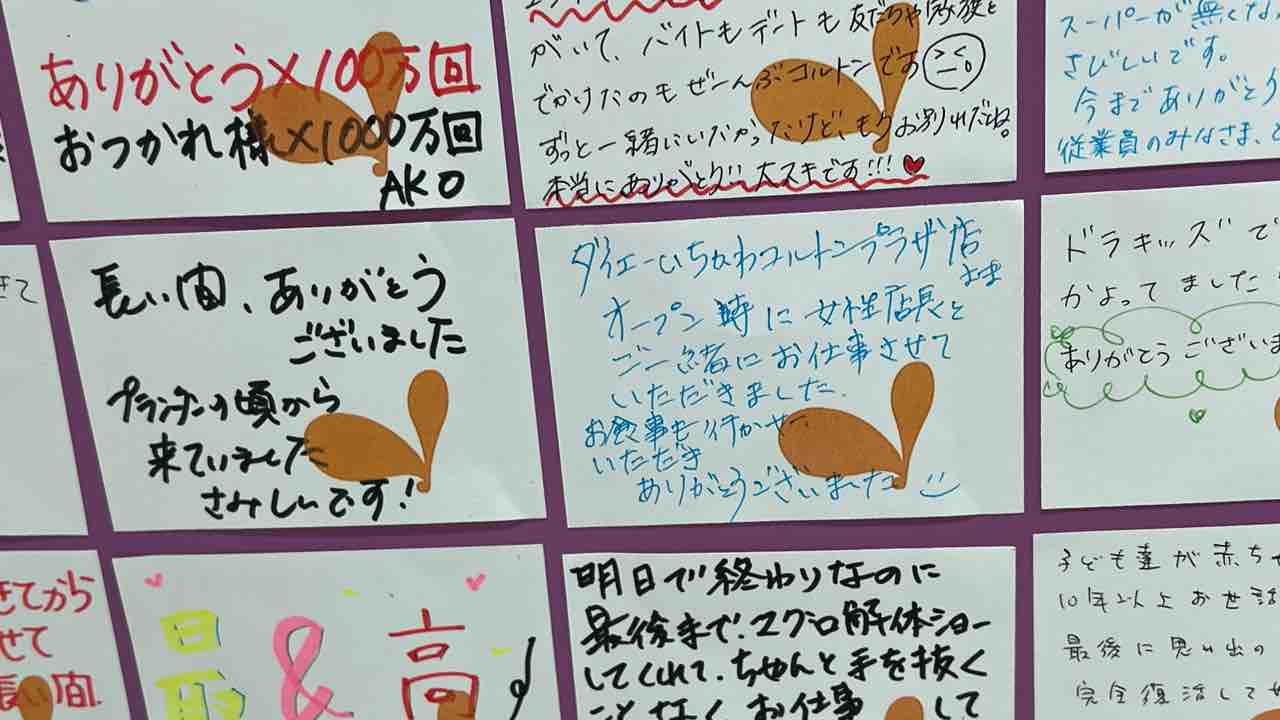 ありがとう×100万回
おつかれ様×1000万回
AKO
がいて、バイトもデートも友だちや家族と
でかけたのもぜーんぶコルトンです
ずっと一緒にいたかったけど、もうお別れだね。
本当にありがとう!! 大スキです!!!
スーパーが無くな
さびしいです。
今までありがとう
従業員のみなさま、
きて
長い間、ありがとう
ございました
プランタンの頃から
来ていました
さみしいです!
ダイエーいちかわコルトンプラザ店
オープン時に女性店長と
ご一緒にお仕事させて
いただきました.
お食事も行かせて
いただき
ありがとうございました
ドラキッズで
かよってました
ありがとうございま
きてから
せて
長い間.
最&高
明日で終わりなのに
最後まで、マグロ解体ショー
してくれて、ちゃんと手を抜く
ことなくお仕事して
子ども達が赤ち
10年以上お世話
最後に思い出の
完全復活して